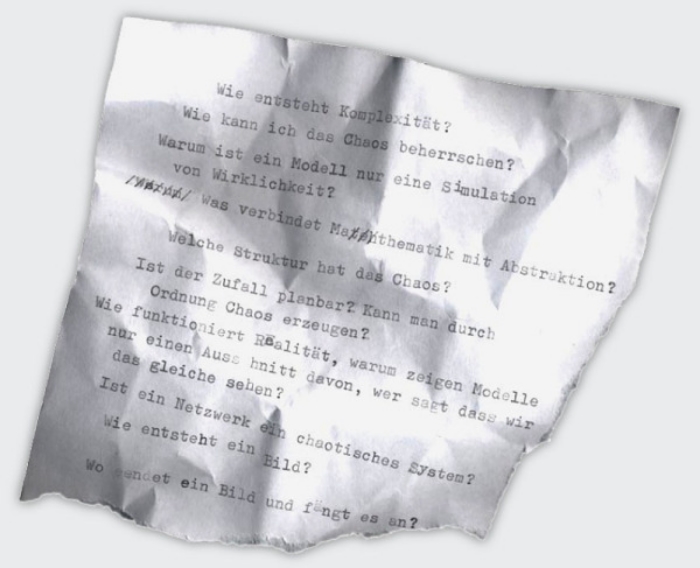 Wie entsteht Komplexität?
Wie kann ich das Chaos beherrschen?
Warum ist ein Modell nur eine Simulation
von Wirklichkeit?
Was verbindet Mathematik mit Abstraktion?
Welche Struktur hat das Chaos?
Ist der Zufall planbar? Kann man durch
Ordnung Chaos erzeugen?
Wie funktioniert Realität, warum zeigen Modelle
nur einen Auss hnitt davon, wer sagt dass wir
das gleiche sehen?
Ist ein Netzwerk ein chaotisches System?
Wie entsteht ein
Bild?
Wo endet ein Bild und fängt es an?